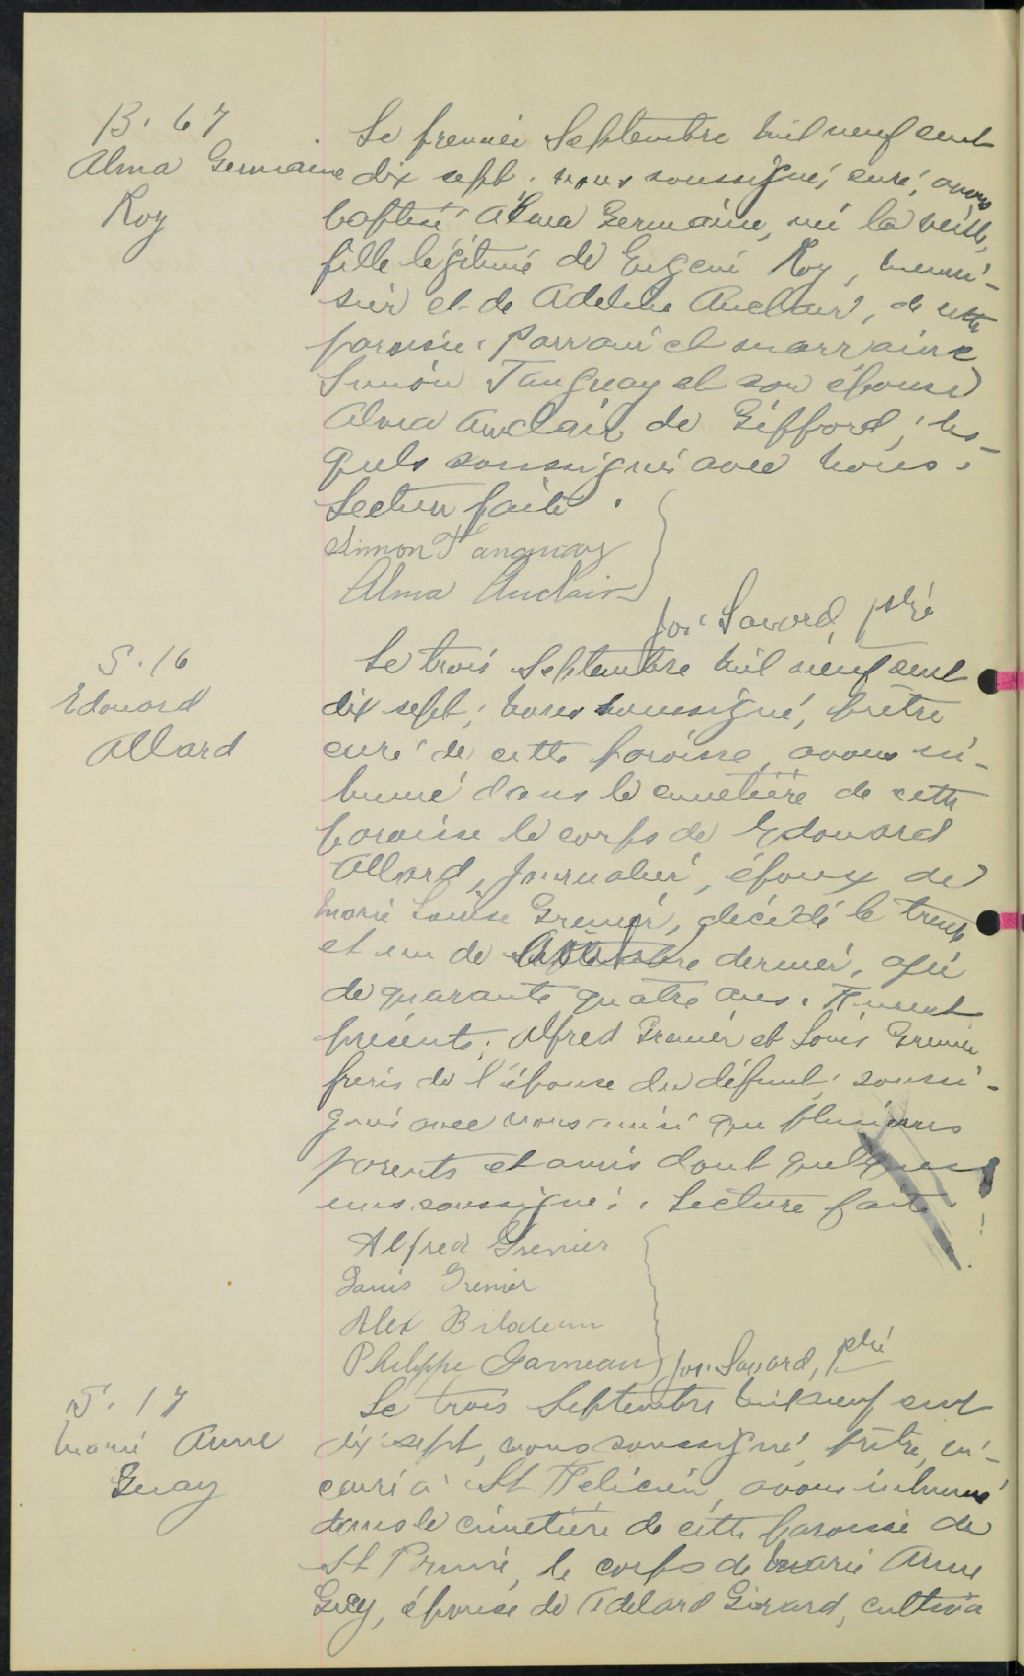 B. 67
Alma Germaine
Roy
Le premier Septembre mil neuf cent
dix sept, nous soussigné, curé, avons
baptisé Alma Germaine, née la veille,
fille légitime de Eugene Roy, menui-
sier et de Adeline Auclair, de cette
paroisse. Parrain et marraine
Simon Tanguay et son épouse
Alma Auclair de Gifford; les-
quels soussignés avec nous.
Lecture faite.
Simon Tanguay
Alma Auclair
Jos. Savard, ptre
S. 16
Edouard
Allard
Le trois Septembre mil neuf cent
dix sept; nous soussigné, prêtre
curé de cette paroisse, avons in-
humé dans le cimetière de cette
paroisse le corps de Edouard
Allard, journalier, époux de
Marie Louise Grenier, décédé le trente
et un de dernier, agé
de quarante quatre ans. Furent
présents; Alfred Grenier et Louis Grenier
freres de l'épouse du défunt, soussi-
gnés avec nous ainsi que plusieurs
parents et amis dont quelques
uns soussignés. Lecture faite.
Alfred Grenier
Louis Grenier
Alex Bilodeau
Philippe Garneau
Jos. Savard, ptre
S. 17
Marie Anne
Guay
Le trois Septembre mil neuf cent
dix sept, nous soussigné, prêtre, vi-
caire à St Félicien, avons inhumé
dans le cimetière de cette paroisse de
St Prime, le corps de Marie Anne
Guay, épouse de Adelard Girard, cultiva